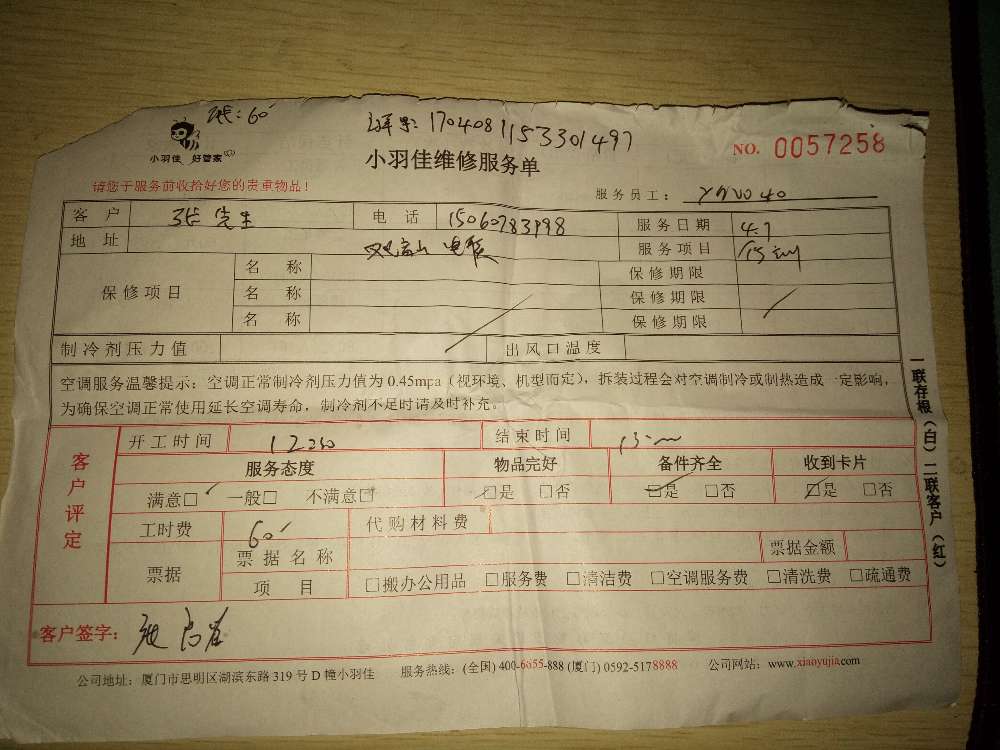 60
1704081153301497
小羽佳 好管家
小羽佳维修服务单
NO. 0057258
请您于服务前收拾好您的贵重物品!
服务员工:
客户 张先生 电话 15060783998 服务日期 4.7
地址 服务项目
保修项目 名称 保修期限
名称 保修期限
名称 保修期限
制冷剂压力值 出风口温度
空调服务温馨提示:空调正常制冷剂压力值为0.45mpa(视环境、机型而定),拆装过程会对空调制冷或制热造成一定影响,
为确保空调正常使用延长空调寿命,制冷剂不足时请及时补充。
一联存根(白)二联客户(红)
客户评定
开工时间 结束时间
服务态度 物品完好 备件齐全 收到卡片
满意□ 一般□ 不满意□ □是 □否 □是 □否 □是 □否
工时费 60 代购材料费
票据 票据名称 票据金额
项目 □搬办公用品 □服务费 □清洁费 □空调服务费 □清洗费 □疏通费
客户签字:
公司地址:厦门市思明区湖滨东路319号D幢小羽佳 服务热线:(全国)400-6655-888(厦门)0592-5178888 公司网站:www.xiaoyujia.com